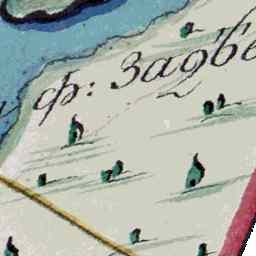 ф: Задве